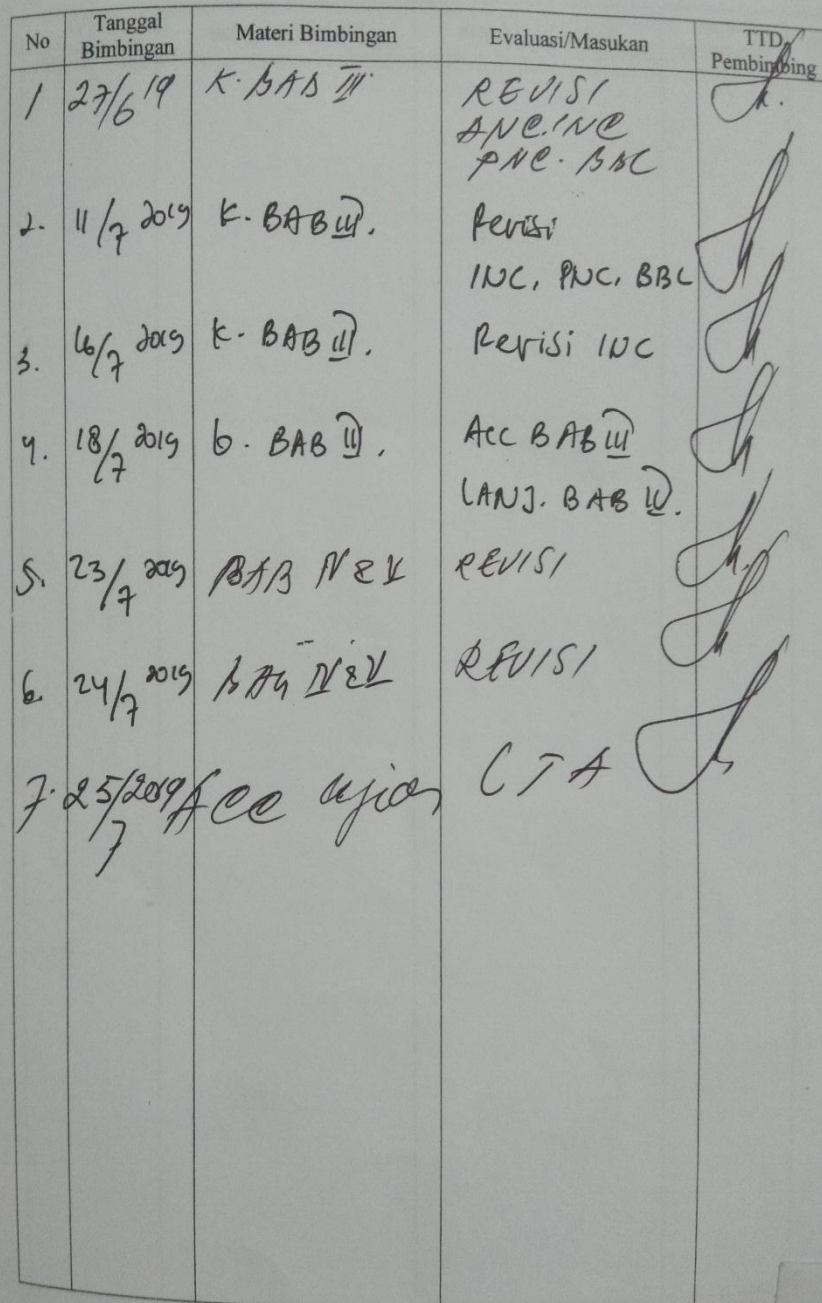 No Tanggal Bimbingan Materi Bimbingan Evaluasi/Masukan TTD Pembimbing
1 27/6 19 K. BAB III REVISI
ANC. INC
PNC. BBC
2. 11/7 2019 K. BAB III. Revisi
INC, PNC, BBC
3. 16/7 2019 K. BAB III. Revisi INC
4. 18/7 2019 BAB III. ACC BAB III
LANJ. BAB IV.
5. 23/7 2019 BAB IV & V REVISI
6. 24/7 2019 BAB IV & V REVISI
7. 25/7 2019 Acc ujian LTA